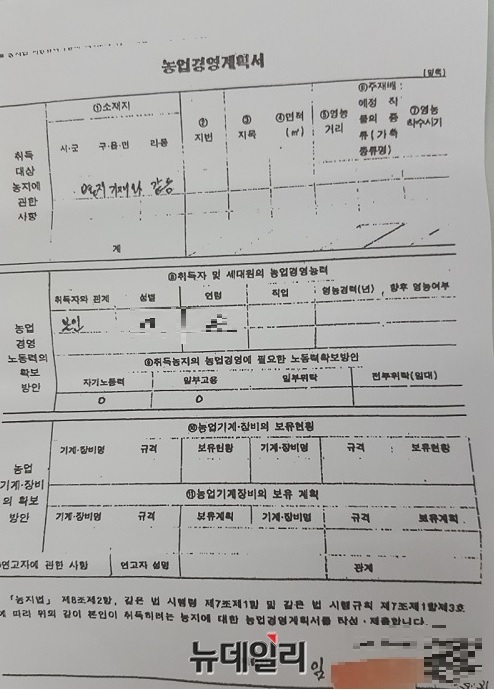 농업경영계획서
(앞쪽)
취득
대상
농지에
관한
사항
①소재지
시·군 구·읍·면 리·동
②
지번
③
지목
④면적
(㎡)
⑤영농
거리
⑥주재배
예정 작
물의 종
류(가축
종류명)
⑦영농
착수시기
계
농업
경영
노동력의
확보
방안
⑧취득자 및 세대원의 농업경영능력
취득자와 관계 성별 연령 직업 영농경력(년) 향후 영농여부
본인
⑨취득농지의 농업경영에 필요한 노동력확보방안
자기노동력 일부고용 일부위탁 전부위탁(임대)
0 0
농업
기계·장비
의 확보
방안
⑩농업기계·장비의 보유현황
기계·장비명 규격 보유현황 기계·장비명 규격 보유현황
⑪농업기계장비의 보유 계획
기계·장비명 규격 보유계획 기계·장비명 규격 보유계획
연고자에 관한 사항 연고자 성명 관계
「농지법」 제8조제2항, 같은 법 시행령 제7조제1항 및 같은 법 시행규칙 제7조제1항제3호
에 따라 위와 같이 본인이 취득하려는 농지에 대한 농업경영계획서를 작성·제출합니다.
뉴데일리
일